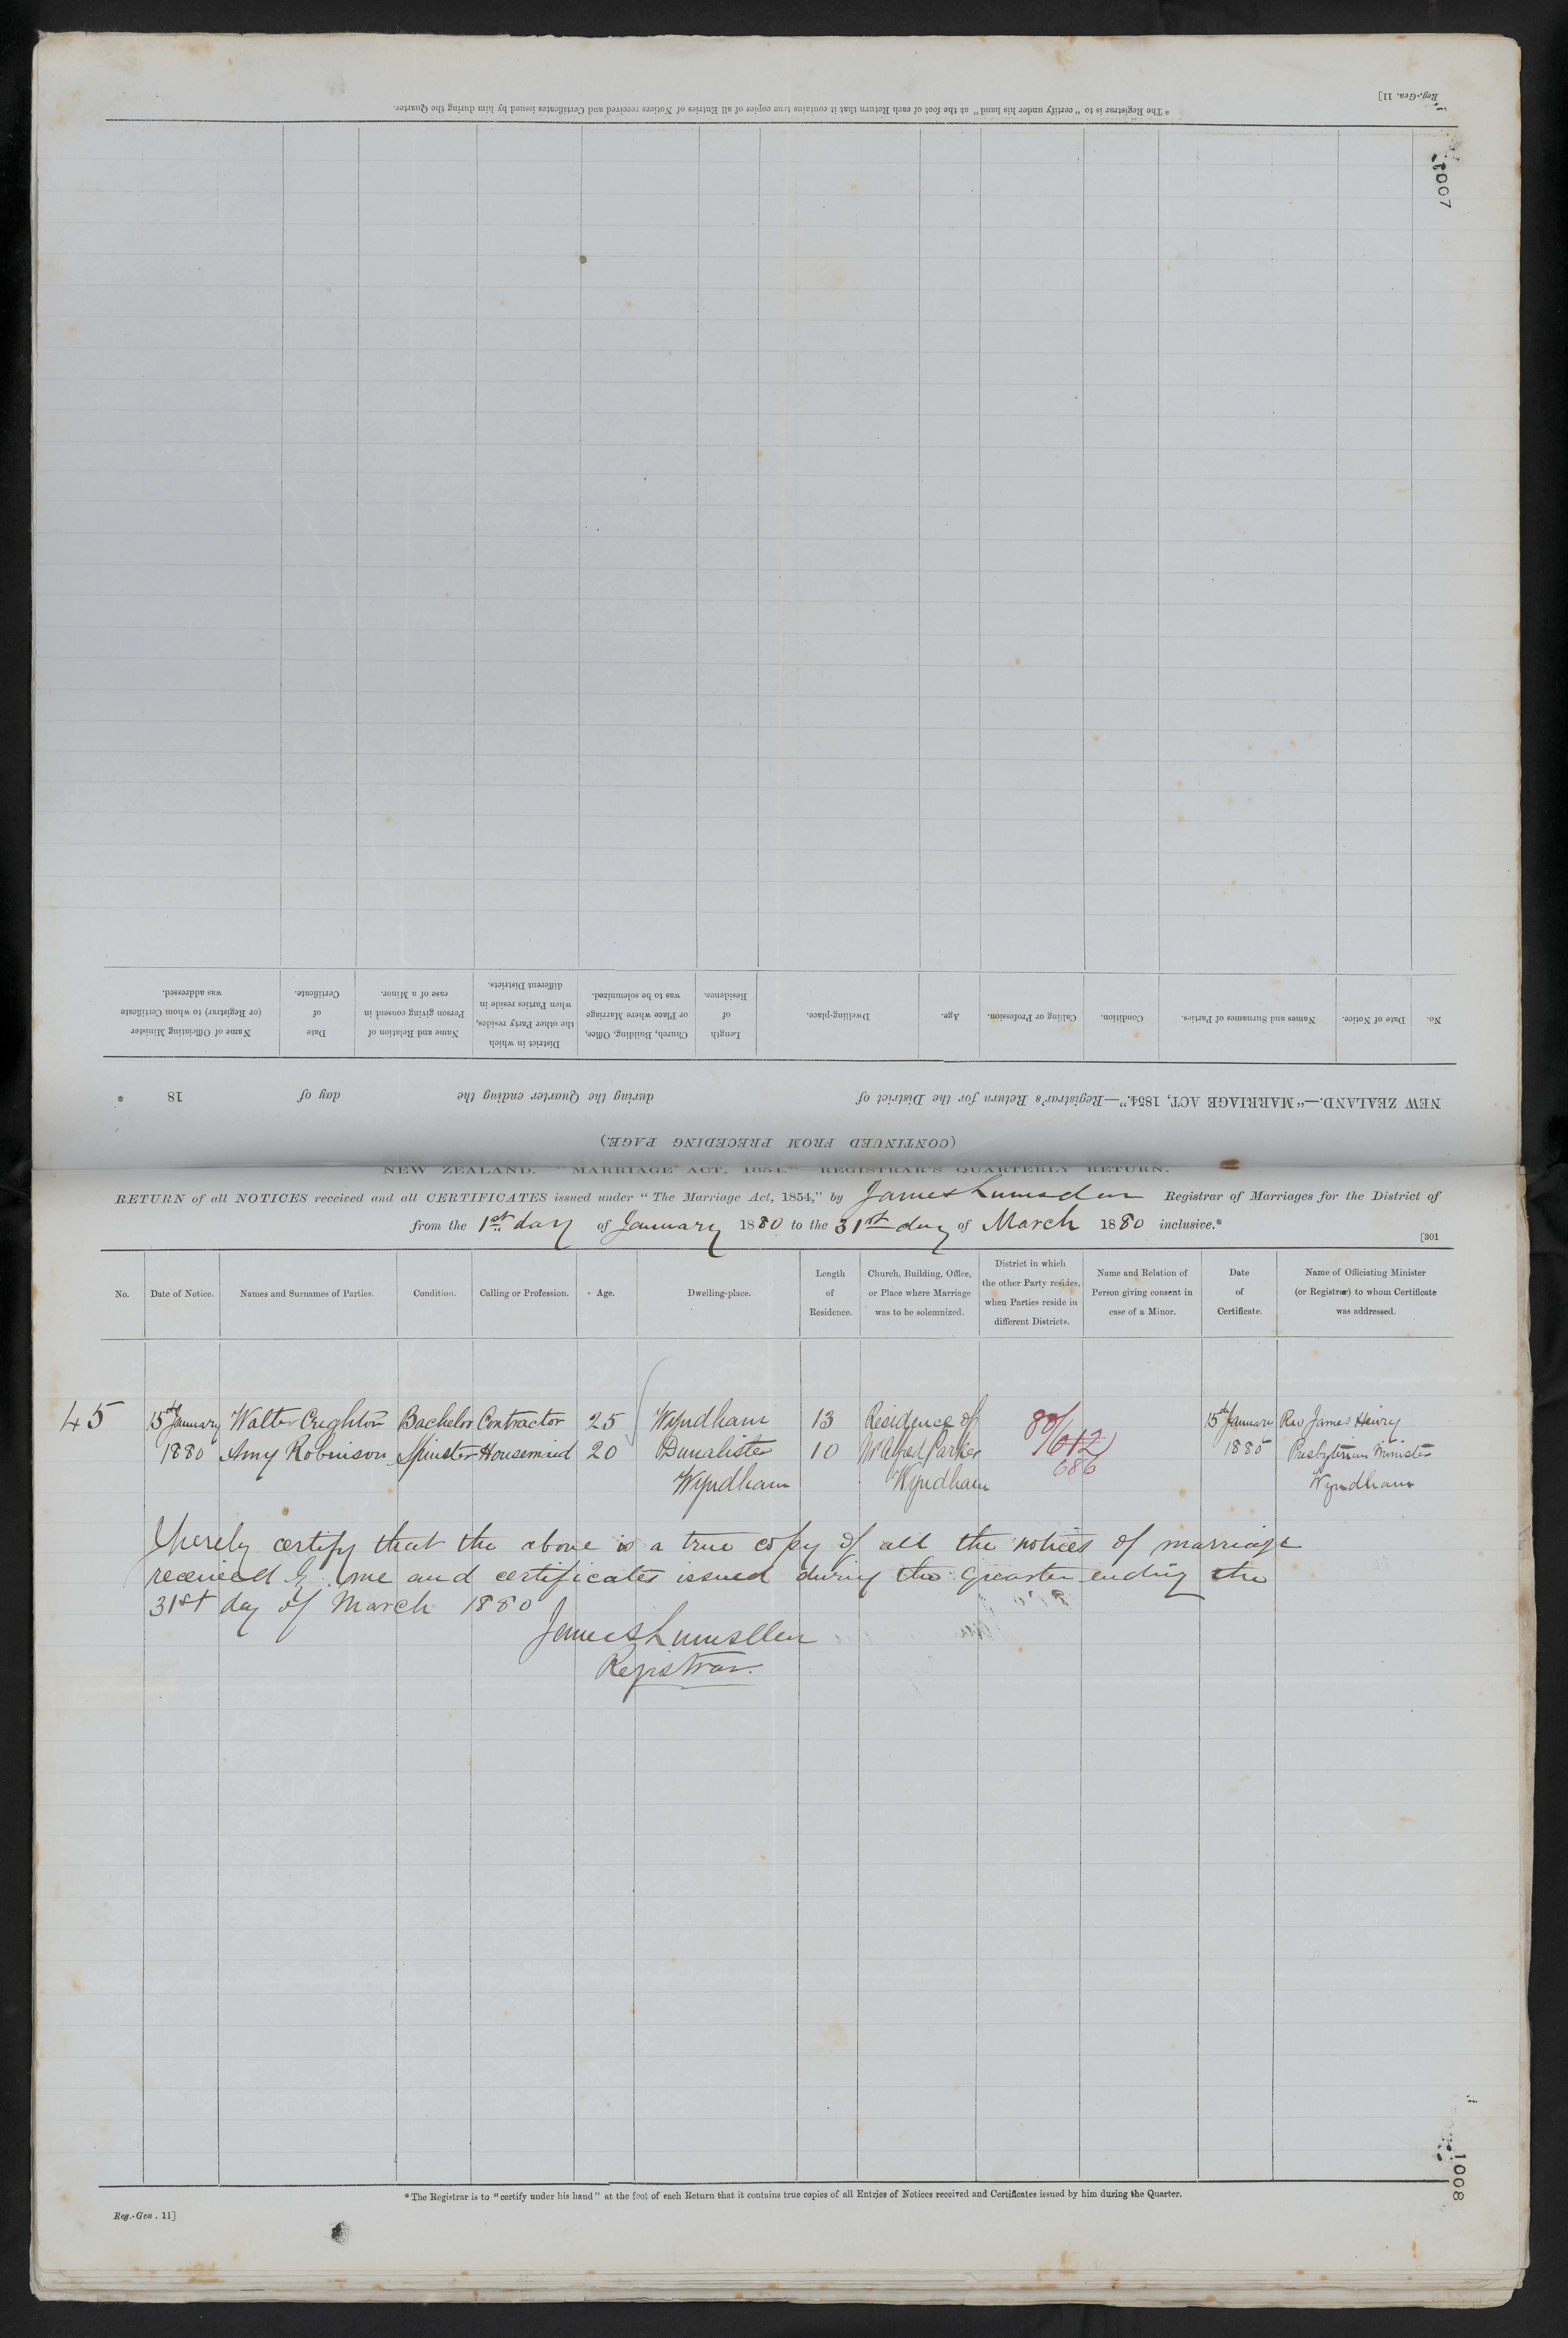 Reg.-Gen. 11]
*The Registrar is to "certify under his hand" at the foot of each Return that it contains true copies of all Entries of Notices received and Certificates issued by him during the Quarter.
1007
No. Date of Notice. Names and Surnames of Parties. Condition. Calling or Profession. Age. Dwelling-place. Length of Residence. Church, Building, Office, or Place where Marriage was to be solemnized. District in which the other Party resides, when Parties reside in different Districts. Name and Relation of Person giving consent in case of a Minor. Date of Certificate. Name of Officiating Minister (or Registrar) to whom Certificate was addressed.
NEW ZEALAND.—"MARRIAGE ACT, 1854."—Registrar's Return for the District of during the Quarter ending the day of 18
(CONTINUED FROM PRECEDING PAGE.)
NEW ZEALAND.—"MARRIAGE ACT, 1854."—REGISTRAR'S QUARTERLY RETURN.
RETURN of all NOTICES received and all CERTIFICATES issued under "The Marriage Act, 1854," by James Lumsden Registrar of Marriages for the District of
from the 1st day of January 1880 to the 31st day of March 1880 inclusive.*
[301
No. Date of Notice. Names and Surnames of Parties. Condition. Calling or Profession. Age. Dwelling-place. Length of Residence. Church, Building, Office, or Place where Marriage was to be solemnized. District in which the other Party resides, when Parties reside in different Districts. Name and Relation of Person giving consent in case of a Minor. Date of Certificate. Name of Officiating Minister (or Registrar) to whom Certificate was addressed.
45 15th January Walter Crighton Bachelor Contractor 25 Wyndham 13 Residence of 80/ 15th January Rev James Henry
1880 Amy Robinson Spinster Housemaid 20 Dunalister 10 Mr Alfred Parker 612 1880 Presbyterian Minister
686
Wyndham Wyndham Wyndham
I hereby certify that the above is a true copy of all the notices of marriage
received by me and certificates issued during the quarter ending the
31st day of March 1880
James Lumsden
Registrar.
*The Registrar is to "certify under his hand" at the foot of each Return that it contains true copies of all Entries of Notices received and Certificates issued by him during the Quarter.
Reg.-Gen. 11]
1008